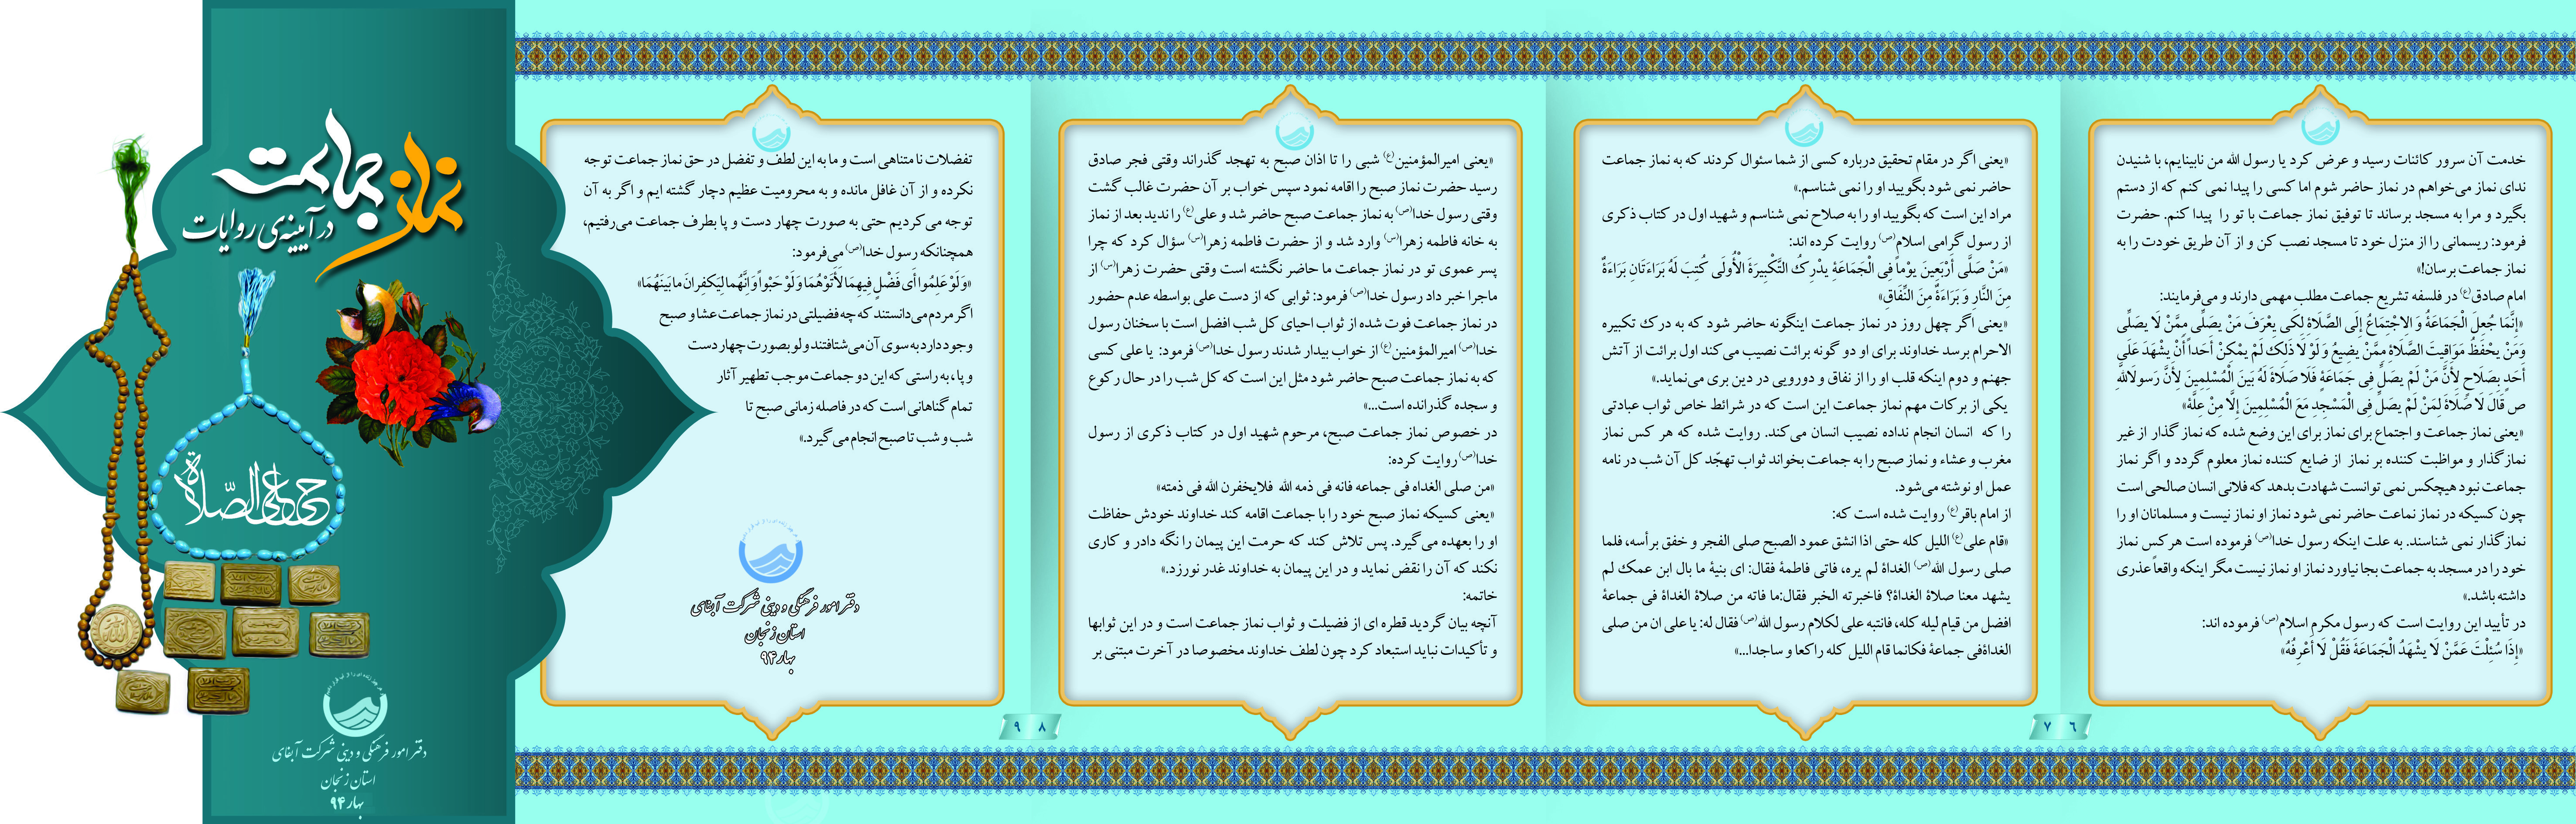 خدمت آن سرور کائنات رسید و عرض کرد یا رسول الله من نابینایم، با شنیدن
ندای نماز می‌خواهم در نماز حاضر شوم اما کسی را پیدا نمی کنم که از دستم
بگیرد و مرا به مسجد برساند تا توفیق نماز جماعت با تو را پیدا کنم. حضرت
فرمود: ریسمانی را از منزل خود تا مسجد نصب کن و از آن طریق خودت را به
نماز جماعت برسان!»
امام صادق(ع) در فلسفه تشریع جماعت مطلب مهمی دارند و می‌فرمایند:
«إِنَّمَا جُعِلَ الْجَمَاعَةُ وَ الِاجْتِمَاعُ إِلَى الصَّلَاةِ لِكَی یعْرَفَ مَنْ یصَلِّی مِمَّنْ لَا یصَلِّی
وَمَنْ یحْفَظُ مَوَاقِیتَ الصَّلَاةِ مِمَّنْ یضِیعُ وَ لَوْ لَا ذَلِكَ لَمْ یمْكِنْ أَحَداً أَنْ یشْهَدَ عَلَى
أَحَدٍ بِصَلَاحٍ لِأَنَّ مَنْ لَمْ یصَلِّ فِی جَمَاعَةٍ فَلَا صَلَاةَ لَهُ بَینَ الْمُسْلِمِینَ لِأَنَّ رَسولَ‌اللَّهِ
ص قَالَ لَا صَلَاةَ لِمَنْ لَمْ یصَلِّ فِی الْمَسْجِدِ مَعَ الْمُسْلِمِینَ إِلَّا مِنْ عِلَّةٍ»
«یعنی نماز جماعت و اجتماع برای نماز برای این وضع شده که نماز گذار از غیر
نمازگذار و مواظبت کننده بر نماز از ضایع کننده نماز معلوم گردد و اگر نماز
جماعت نبود هیچکس نمی توانست شهادت بدهد که فلانی انسان صالحی است
چون کسیکه در نماز نماعت حاضر نمی شود نماز او نماز نیست و مسلمانان او را
نمازگذار نمی شناسند. به علت اینکه رسول خدا(ص) فرموده است هرکس نماز
خود را در مسجد به جماعت بجا نیاورد نماز او نماز نیست مگر اینکه واقعاً عذری
داشته باشد.»
در تأیید این روایت است که رسول مکرم اسلام(ص) فرموده اند:
«إِذَا سُئِلْتَ عَمَّنْ لَا یشْهَدُ الْجَمَاعَةَ فَقُلْ لَا أَعْرِفُهُ»
۶
«یعنی اگر در مقام تحقیق درباره کسی از شما سئوال کردند که به نماز جماعت
حاضر نمی شود بگویید او را نمی شناسم.»
مراد این است که بگویید او را به صلاح نمی شناسم و شهید اول در کتاب ذکری
از رسول گرامی اسلام(ص) روایت کرده اند:
«مَنْ صَلَّى أَرْبَعِینَ یوْماً فِی الْجَمَاعَةِ یدْرِكُ التَّكْبِیرَةَ الْأُولَى كُتِبَ لَهُ بَرَاءَتَانِ بَرَاءَةٌ
مِنَ النَّارِ وَ بَرَاءَةٌ مِنَ النِّفَاقِ»
«یعنی اگر چهل روز در نماز جماعت اینگونه حاضر شود که به درک تکبیره
الاحرام برسد خداوند برای او دو گونه برائت نصیب می‌کند اول برائت از آتش
جهنم و دوم اینکه قلب او را از نفاق و دورویی در دین بری می‌نماید.»
یکی از برکات مهم نماز جماعت این است که در شرائط خاص ثواب عبادتی
را که انسان انجام نداده نصیب انسان می‌کند. روایت شده که هر کس نماز
مغرب و عشاء و نماز صبح را به جماعت بخواند ثواب تهجّد کل آن شب در نامه
عمل او نوشته می‌شود.
از امام باقر(ع) روایت شده است که:
«قام علی(ع) اللیل کله حتی اذا انشق عمود الصبح صلی الفجر و خفق برأسه، فلما
صلی رسول الله(ص) الغداة لم یره، فاتی فاطمة فقال: ای بنیة ما بال ابن عمک لم
یشهد معنا صلاة الغداة؟ فاخبرته الخبر فقال:ما فاته من صلاة الغداة فی جماعة
افضل من قیام لیله کله، فانتبه علی لکلام رسول الله(ص) فقال له: یا علی ان من صلی
الغداةفی جماعة فکانما قام اللیل کله راکعا و ساجدا...»
۷
«یعنی امیرالمؤمنین(ع) شبی را تا اذان صبح به تهجد گذراند وقتی فجر صادق
رسید حضرت نماز صبح را اقامه نمود سپس خواب بر آن حضرت غالب گشت
وقتی رسول خدا(ص) به نماز جماعت صبح حاضر شد و علی(ع) را ندید بعد از نماز
به خانه فاطمه زهرا(س) وارد شد و از حضرت فاطمه زهرا(س) سؤال کرد که چرا
پسر عموی تو در نماز جماعت ما حاضر نگشته است وقتی حضرت زهرا(س) از
ماجرا خبر داد رسول خدا(ص) فرمود: ثوابی که از دست علی بواسطه عدم حضور
در نماز جماعت فوت شده از ثواب احیای کل شب افضل است با سخنان رسول
خدا(ص) امیرالمؤمنین(ع) از خواب بیدار شدند رسول خدا(ص) فرمود: یا علی کسی
که به نماز جماعت صبح حاضر شود مثل این است که کل شب را در حال رکوع
و سجده گذرانده است...»
در خصوص نماز جماعت صبح، مرحوم شهید اول در کتاب ذکری از رسول
خدا(ص) روایت کرده:
«من صلی الغداه فی جماعه فانه فی ذمه الله فلایخفرن الله فی ذمته»
«یعنی کسیکه نماز صبح خود را با جماعت اقامه کند خداوند خودش حفاظت
او را بعهده می‌گیرد. پس تلاش کند که حرمت این پیمان را نگه دادر و کاری
نکند که آن را نقض نماید و در این پیمان به خداوند غدر نورزد.»
خاتمه:
آنچه بیان گردید قطره ای از فضیلت و ثواب نماز جماعت است و در این ثوابها
و تأکیدات نباید استبعاد کرد چون لطف خداوند مخصوصا در آخرت مبتنی بر
۸
تفضلات نامتناهی است و ما به این لطف و تفضل در حق نماز جماعت توجه
نکرده و از آن غافل مانده و به محرومیت عظیم دچار گشته ایم و اگر به آن
توجه می‌کردیم حتی به صورت چهار دست و پا بطرف جماعت می‌رفتیم،
همچنانکه رسول خدا(ص) می‌فرمود:
«وَلَوْ عَلِمُوا أَی فَضْلٍ فِیهِمَا لَأَتَوْهُمَا وَلَوْ حَبْواً وَإِنَّهُمَا لَیَكفِرَانِ مَا بَینَهُمَا»
اگر مردم می‌دانستند که چه فضیلتی در نماز جماعت عشا و صبح
وجود دارد به سوی آن می‌شتافتند ولو بصورت چهار دست
و پا، به راستی که این دو جماعت موجب تطهیر آثار
تمام گناهانی است که در فاصله زمانی صبح تا
شب و شب تا صبح انجام می‌گیرد.»
دفتر امور فرهنگی و دینی شرکت آبفای
استان زنجان
بهار ۹۴
۹
نماز جماعت
در آیینه‌ی روایات
حی علی الصّلاة
دفتر امور فرهنگی و دینی شرکت آبفای
استان زنجان
بهار ۹۴